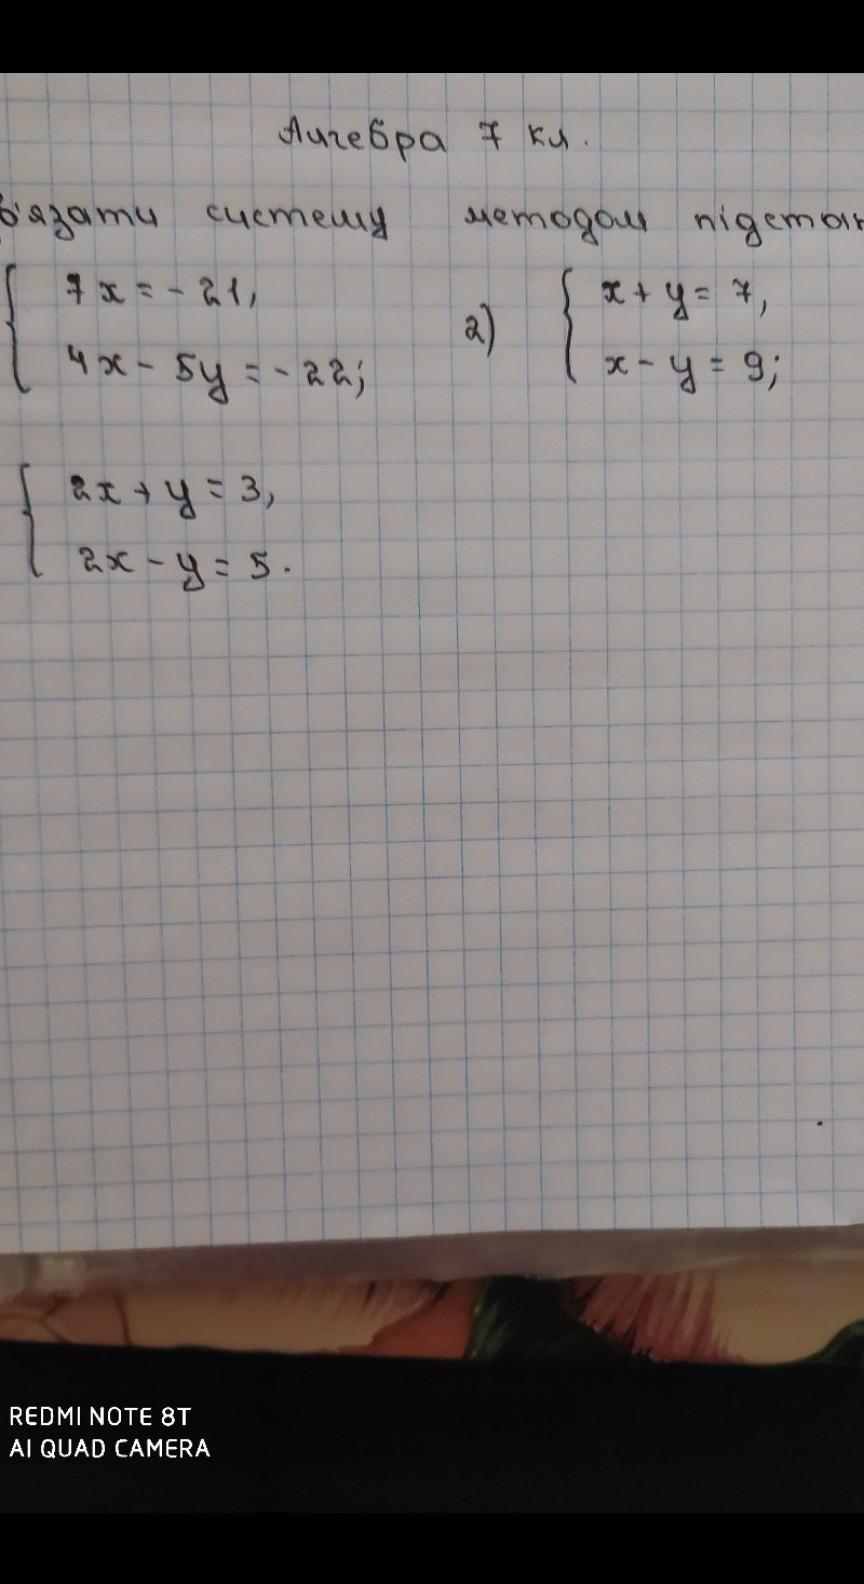 Алгебра 7 кл.
в'язати систему методом підстан
7x = -21,
4x - 5y = -22;
2) x + y = 7,
x - y = 9;
2x + y = 3,
2x - y = 5.
REDMI NOTE 8T
AI QUAD CAMERA